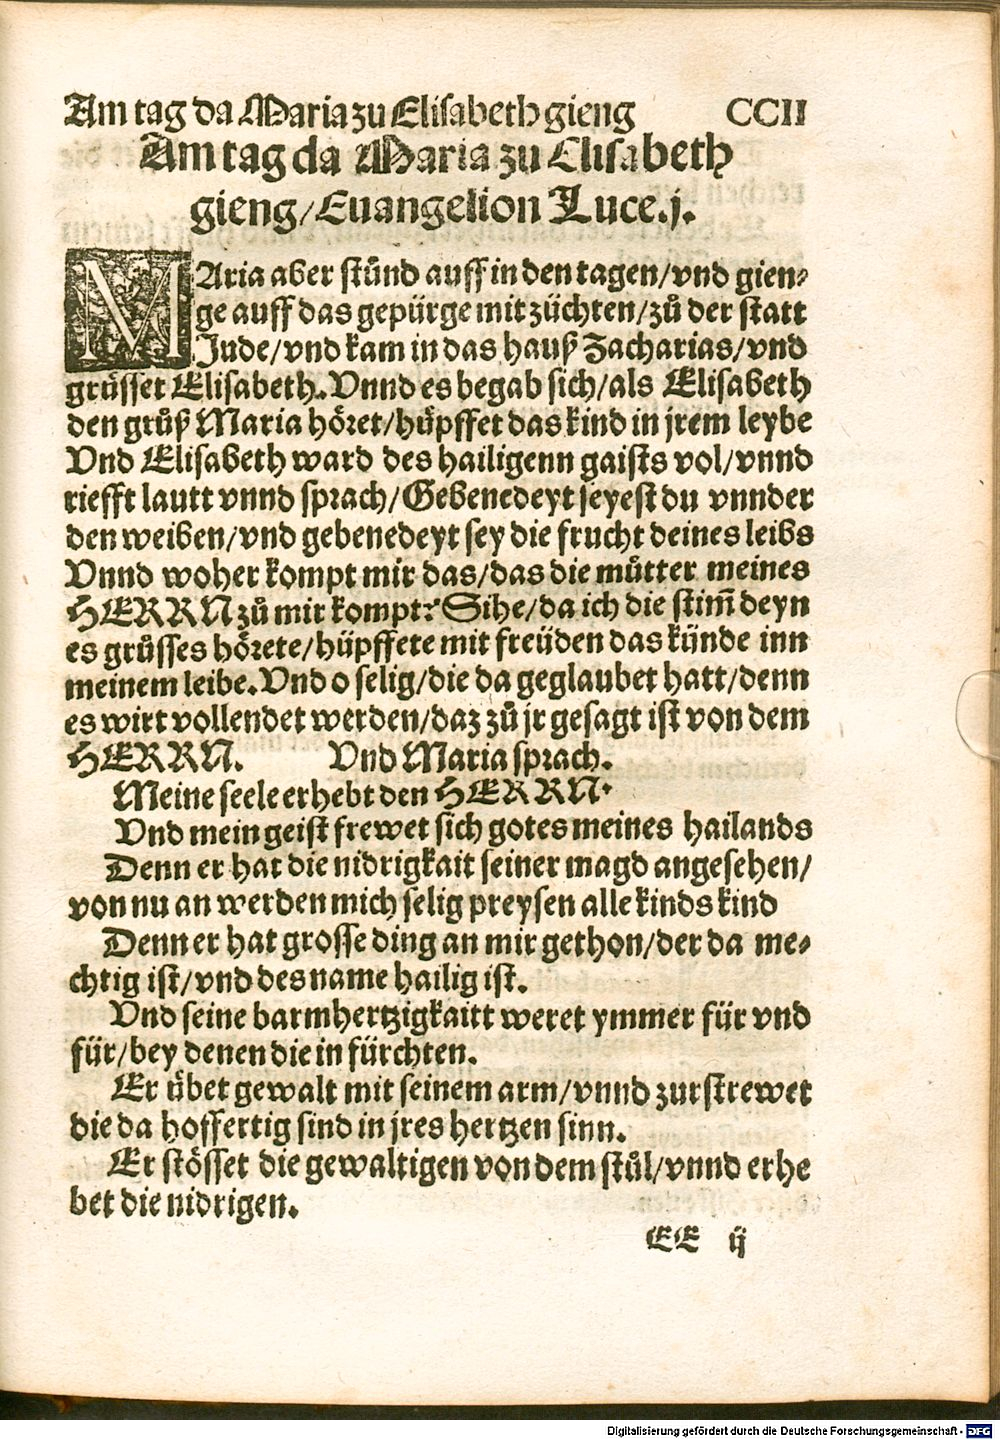 Am tag da Maria zu Elisabeth gieng CCII
Am tag da Maria zu Elisabeth
gieng/Euangelion Luce.j.
MAria aber stůnd auff in den tagen/vnd gien-
ge auff das gepürge mit züchten/zů der statt
Jude/vnd kam in das hauß Zacharias/vnd
grůsset Elisabeth. Vnnd es begab sich/als Elisabeth
den grůß Maria höret/hüpffet das kind in jrem leybe
Vnd Elisabeth ward des hailigenn gaists vol/vnnd
riefft lautt vnnd sprach/Gebenedeyt seyest du vnnder
den weiben/vnd gebenedeyt sey die frucht deines leibs
Vnnd woher kompt mir das/das die můtter meines
HERRN zů mir kompt? Sihe/da ich die stim̃ deyn
es grůsses hörete/hüpffete mit freüden das künde inn
meinem leibe. Vnd o selig/die da geglaubet hatt/denn
es wirt vollendet werden/daz zů jr gesagt ist von dem
HERRN. Vnd Maria sprach.
Meine seele erhebt den HERRN.
Vnd mein geist frewet sich gotes meines hailands
Denn er hat die nidrigkait seiner magd angesehen/
von nu an werden mich selig preysen alle kinds kind
Denn er hat grosse ding an mir gethon/der da me-
chtig ist/vnd des name hailig ist.
Vnd seine barmhertzigkaitt weret ymmer für vnd
für/bey denen die in fürchten.
Er übet gewalt mit seinem arm/vnnd zurstrewet
die da hoffertig sind in jres hertzen sinn.
Er stösset die gewaltigen von dem stůl/vnnd erhe
bet die nidrigen.
EE ij
Digitalisierung gefördert durch die Deutsche Forschungsgemeinschaft - DFG